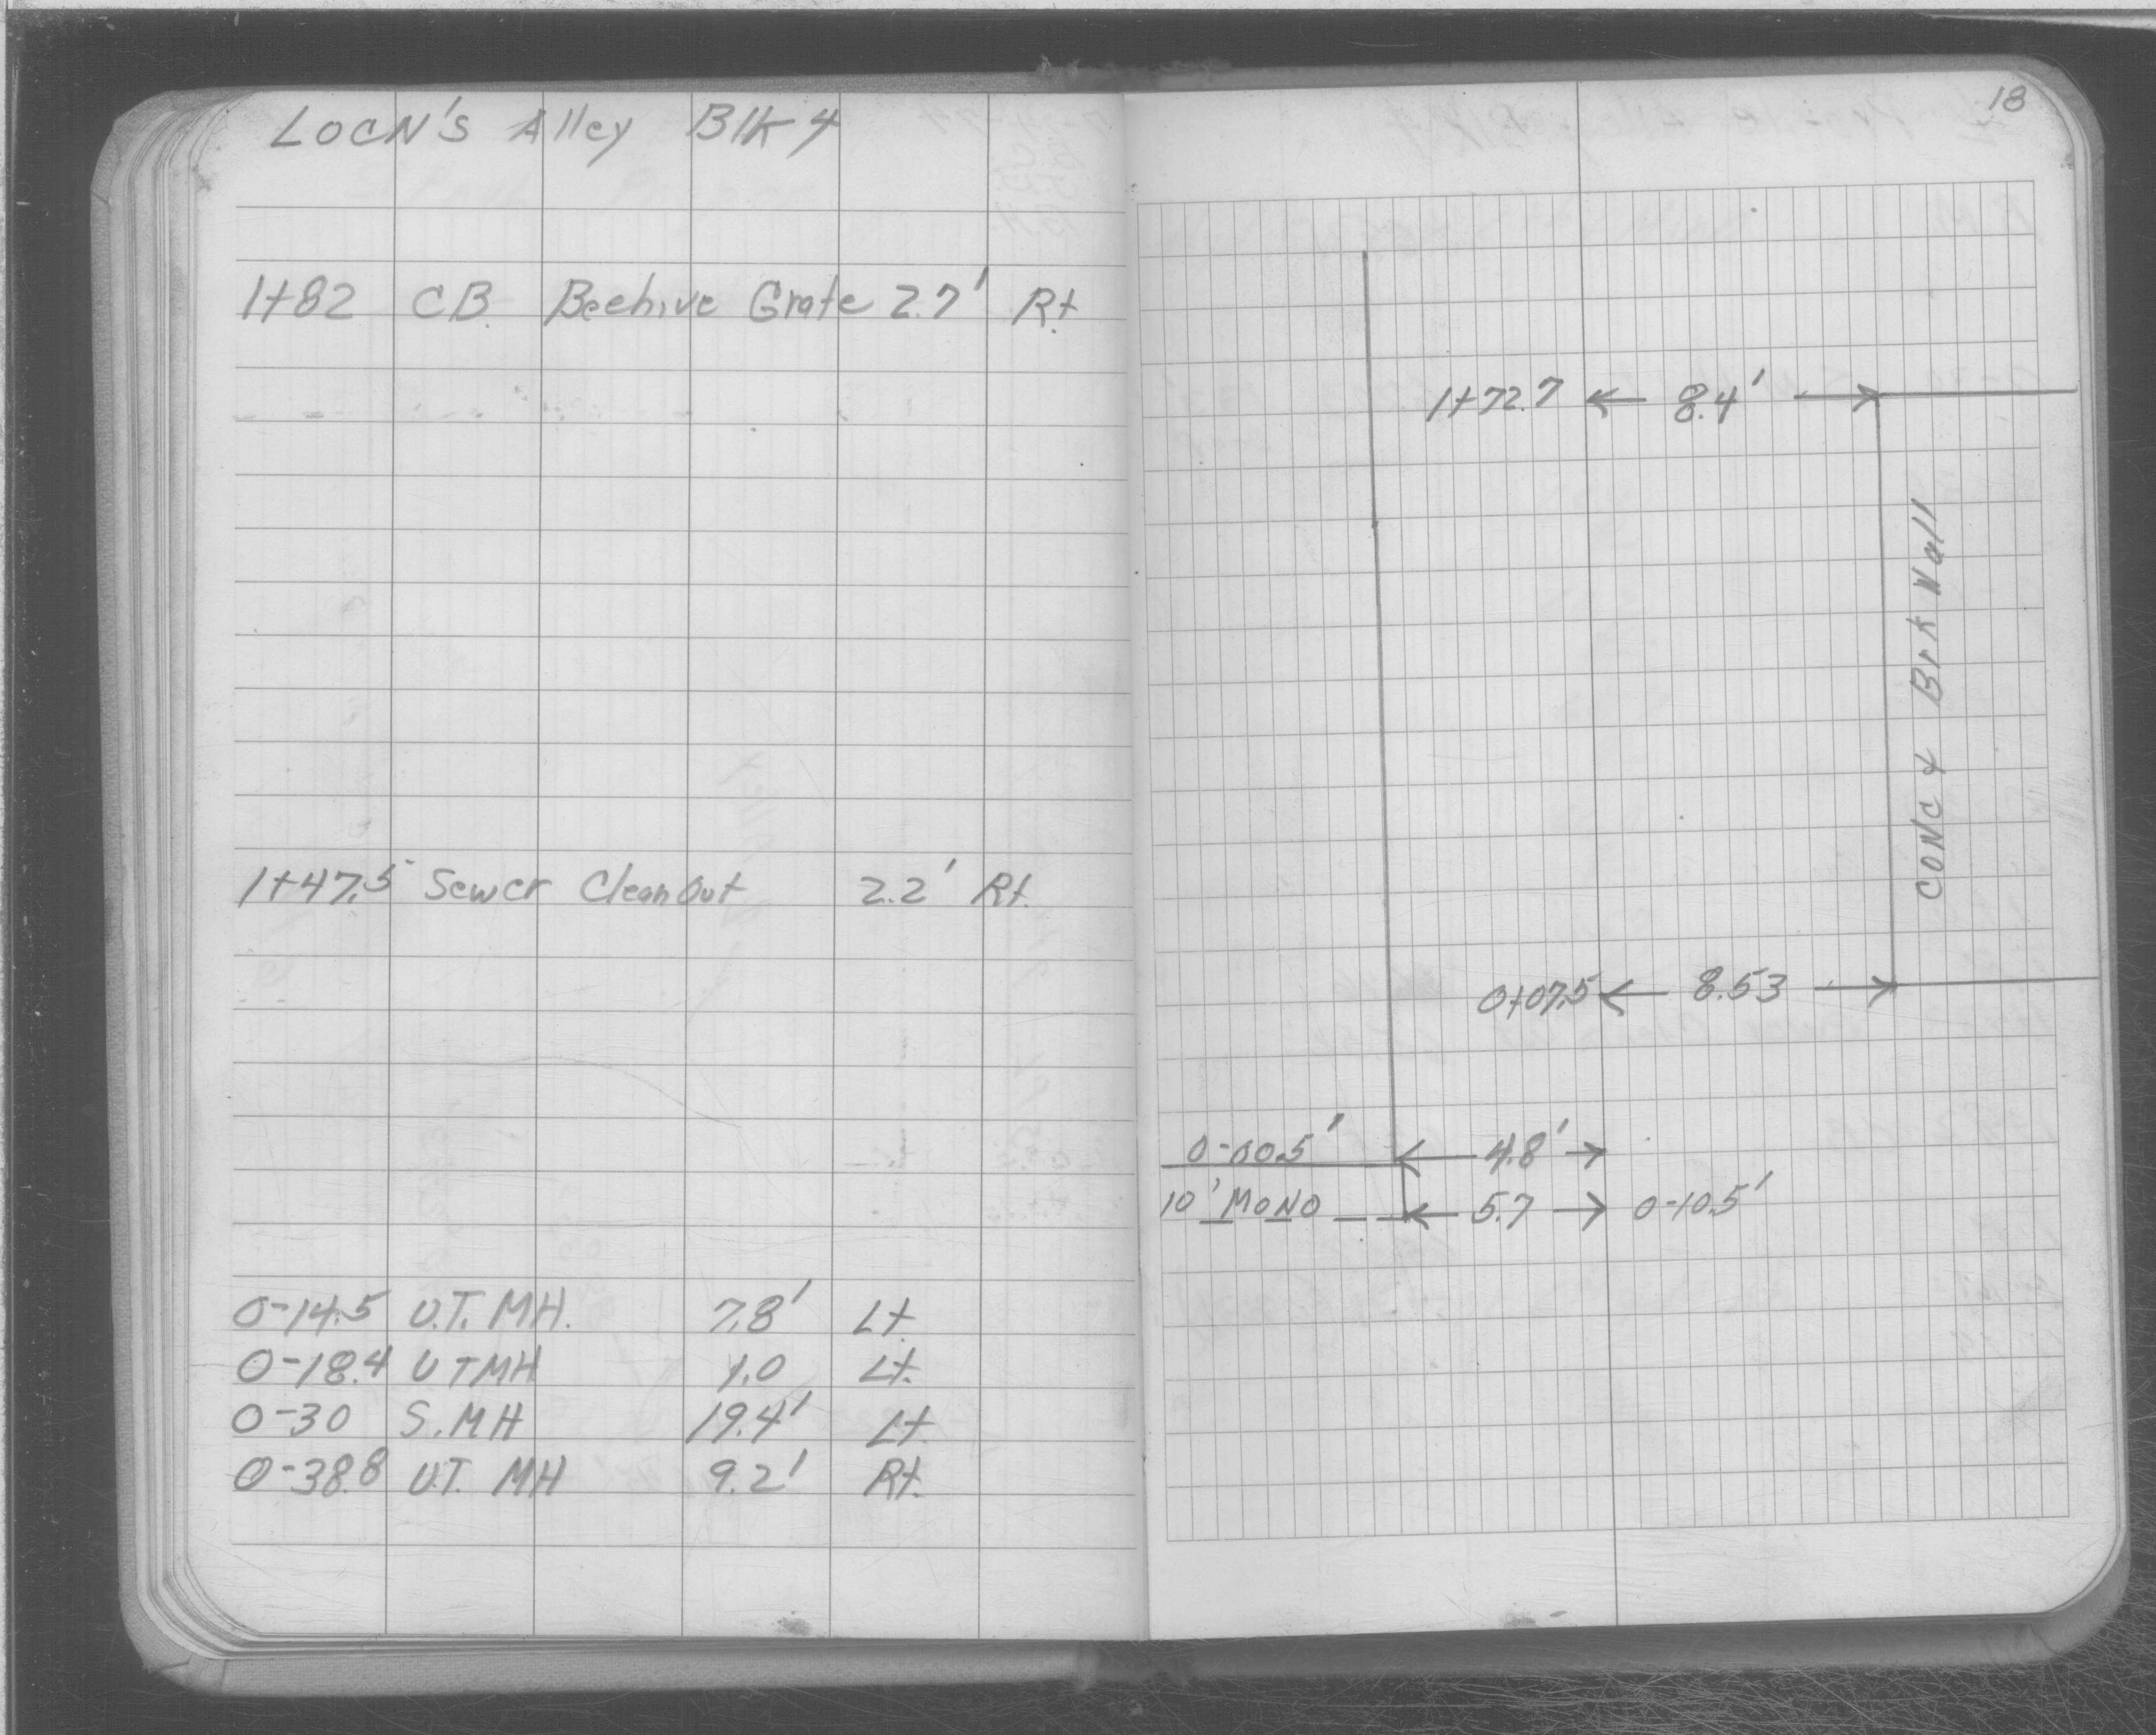 LOCN'S Alley Blk 4
1+82 C.B. Beehive Grate 2.7' Rt.
1+47.5 Sewer CleanOut 2.2' Rt.
0-14.5 U.T. MH. 7.8' Lt.
0-18.4 UTMH 1.0 Lt.
0-30 S.MH 19.4' Lt.
0-38.8 U.T. MH 9.2' Rt.
18
1+72.7 ← 8.4' →
CONC & Brk Wall
0+07.5 ← 8.53 →
0-00.5' ← 4.8' →
10' MONO ← 5.7 → 0-10.5'